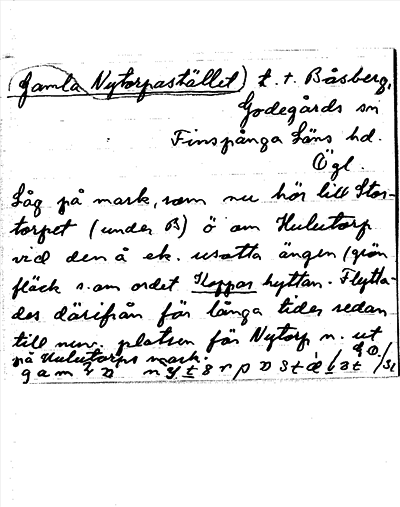 (Gamla Nytorpastället) t. t. Båsberg,
Godegårds sn
Finspånga Läns hd.
Ögl.
Låg på mark, som nu hör till Stor-
torpet (under B) ö om Hulutorp
vid den å ek. utsatta ängen (grön
fläck s. om ordet Koppar hyttan. Flytta-
des därifrån för långa tider sedan
till nuv. platsen för Nytorp n. ut
på Hulutorps mark.